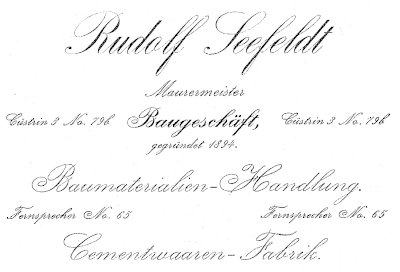 Rudolf Seefeldt
Maurermeister
Cüstrin 3 No. 79b Baugeschäft, Cüstrin 3 No. 79b
gegründet 1894.
Baumaterialien-Handlung.
Fernsprecher No. 65 Fernsprecher No. 65
Cementwaaren-Fabrik.